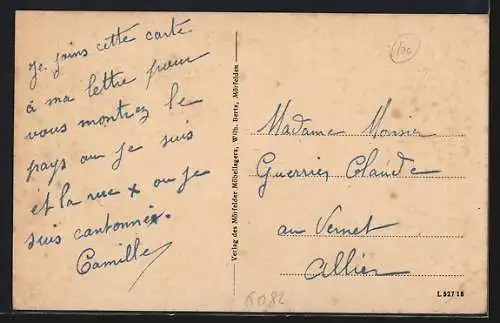 Je joins cette carte
à ma lettre pour
vous montrez le
pays ou je suis
et la rue x ou je
suis cantonnée.
Camille
Verlag des Mörfelder Möbellagers, Wilh. Bertz, Mörfelden
100
Madame Monier
Guerrier Claude
au Vernet
Allier
6082
L 52718